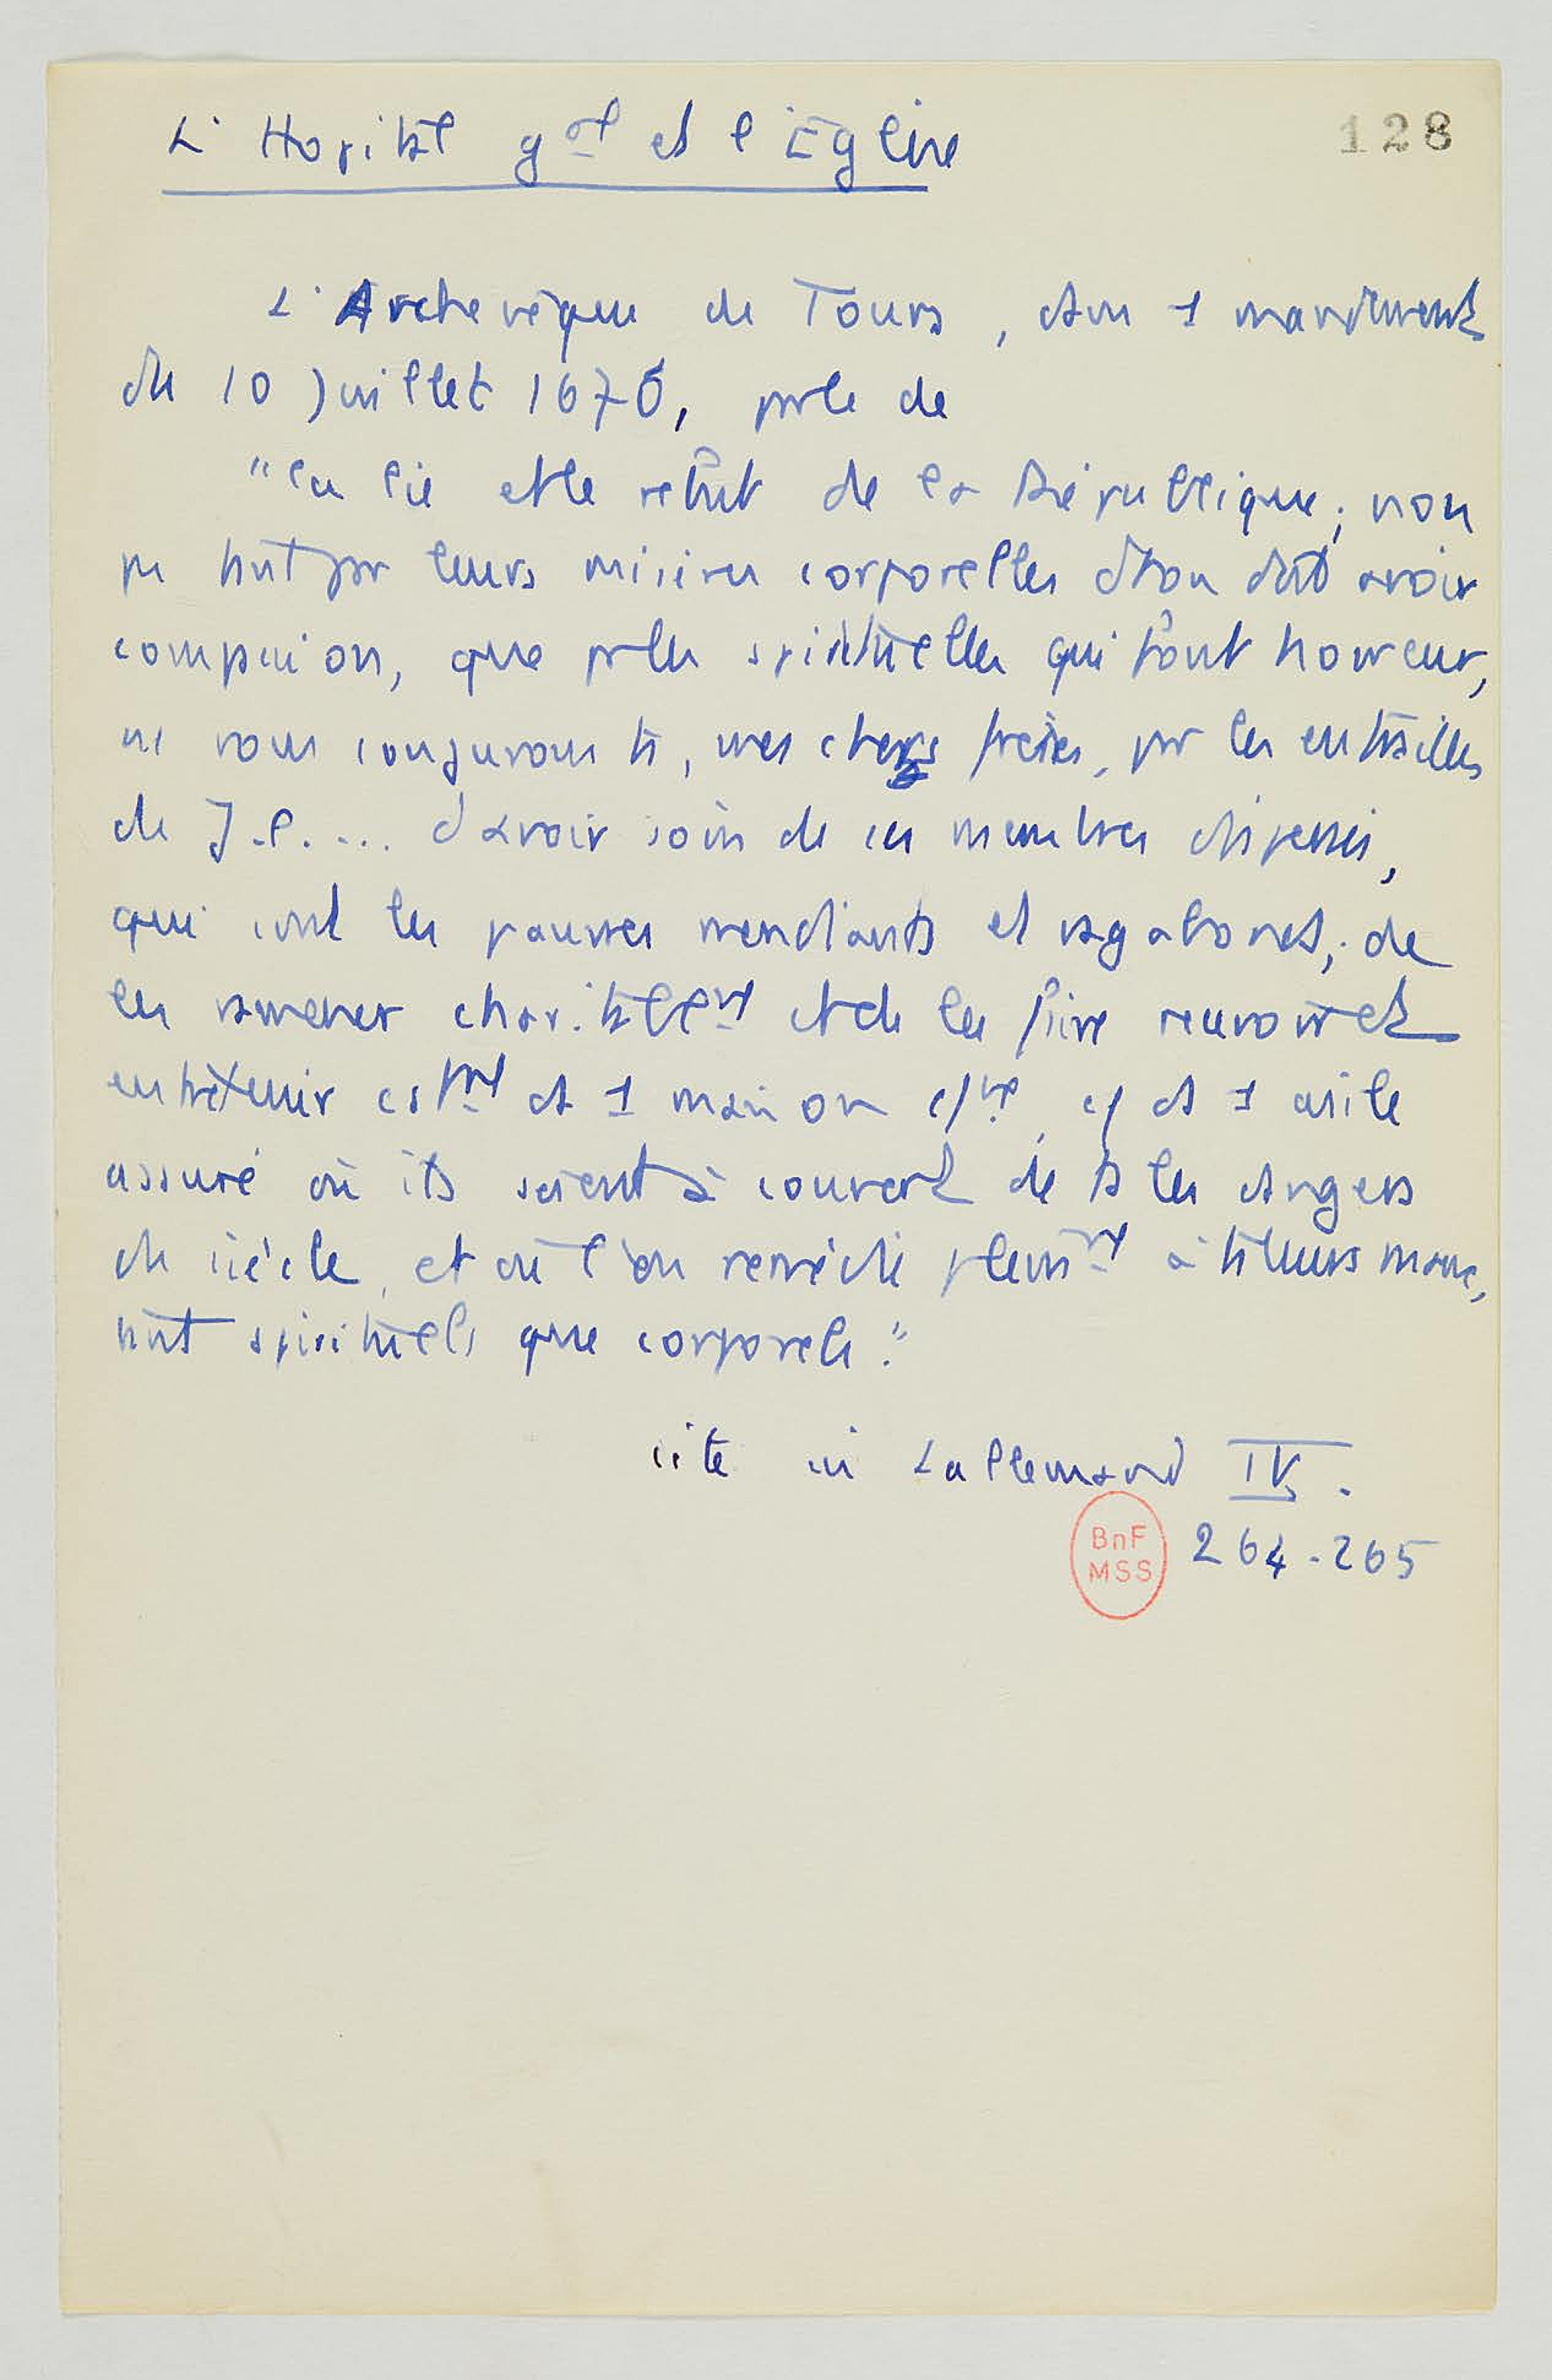 L'Hopital gal et l'Eglise
128
L'Archevêque de Tours, dans 1 mandement
du 10 Juillet 1670, parle de
"la lie et le rebut de la République, non
pas tant par leurs misères corporelles dt on doit avoir
compassion, que par les spirituelles qui font horreur,
ns vous conjurons ts, mes chers frères, par les entrailles
de J.C.... d'avoir soin de ces membres dispersés,
qui sont les pauvres mendiants et vagabonds, de
les ramener charitablemt et de les faire recevoir et
entretenir et 1 maison ds 1 asile
assuré où ils soient à couvert de ts les dangers
du siècle, et où l'on remédie pleinmt à ts leurs maux,
tant spirituels que corporels."
cité in Lallemand IV.
264-265
BnF
MSS